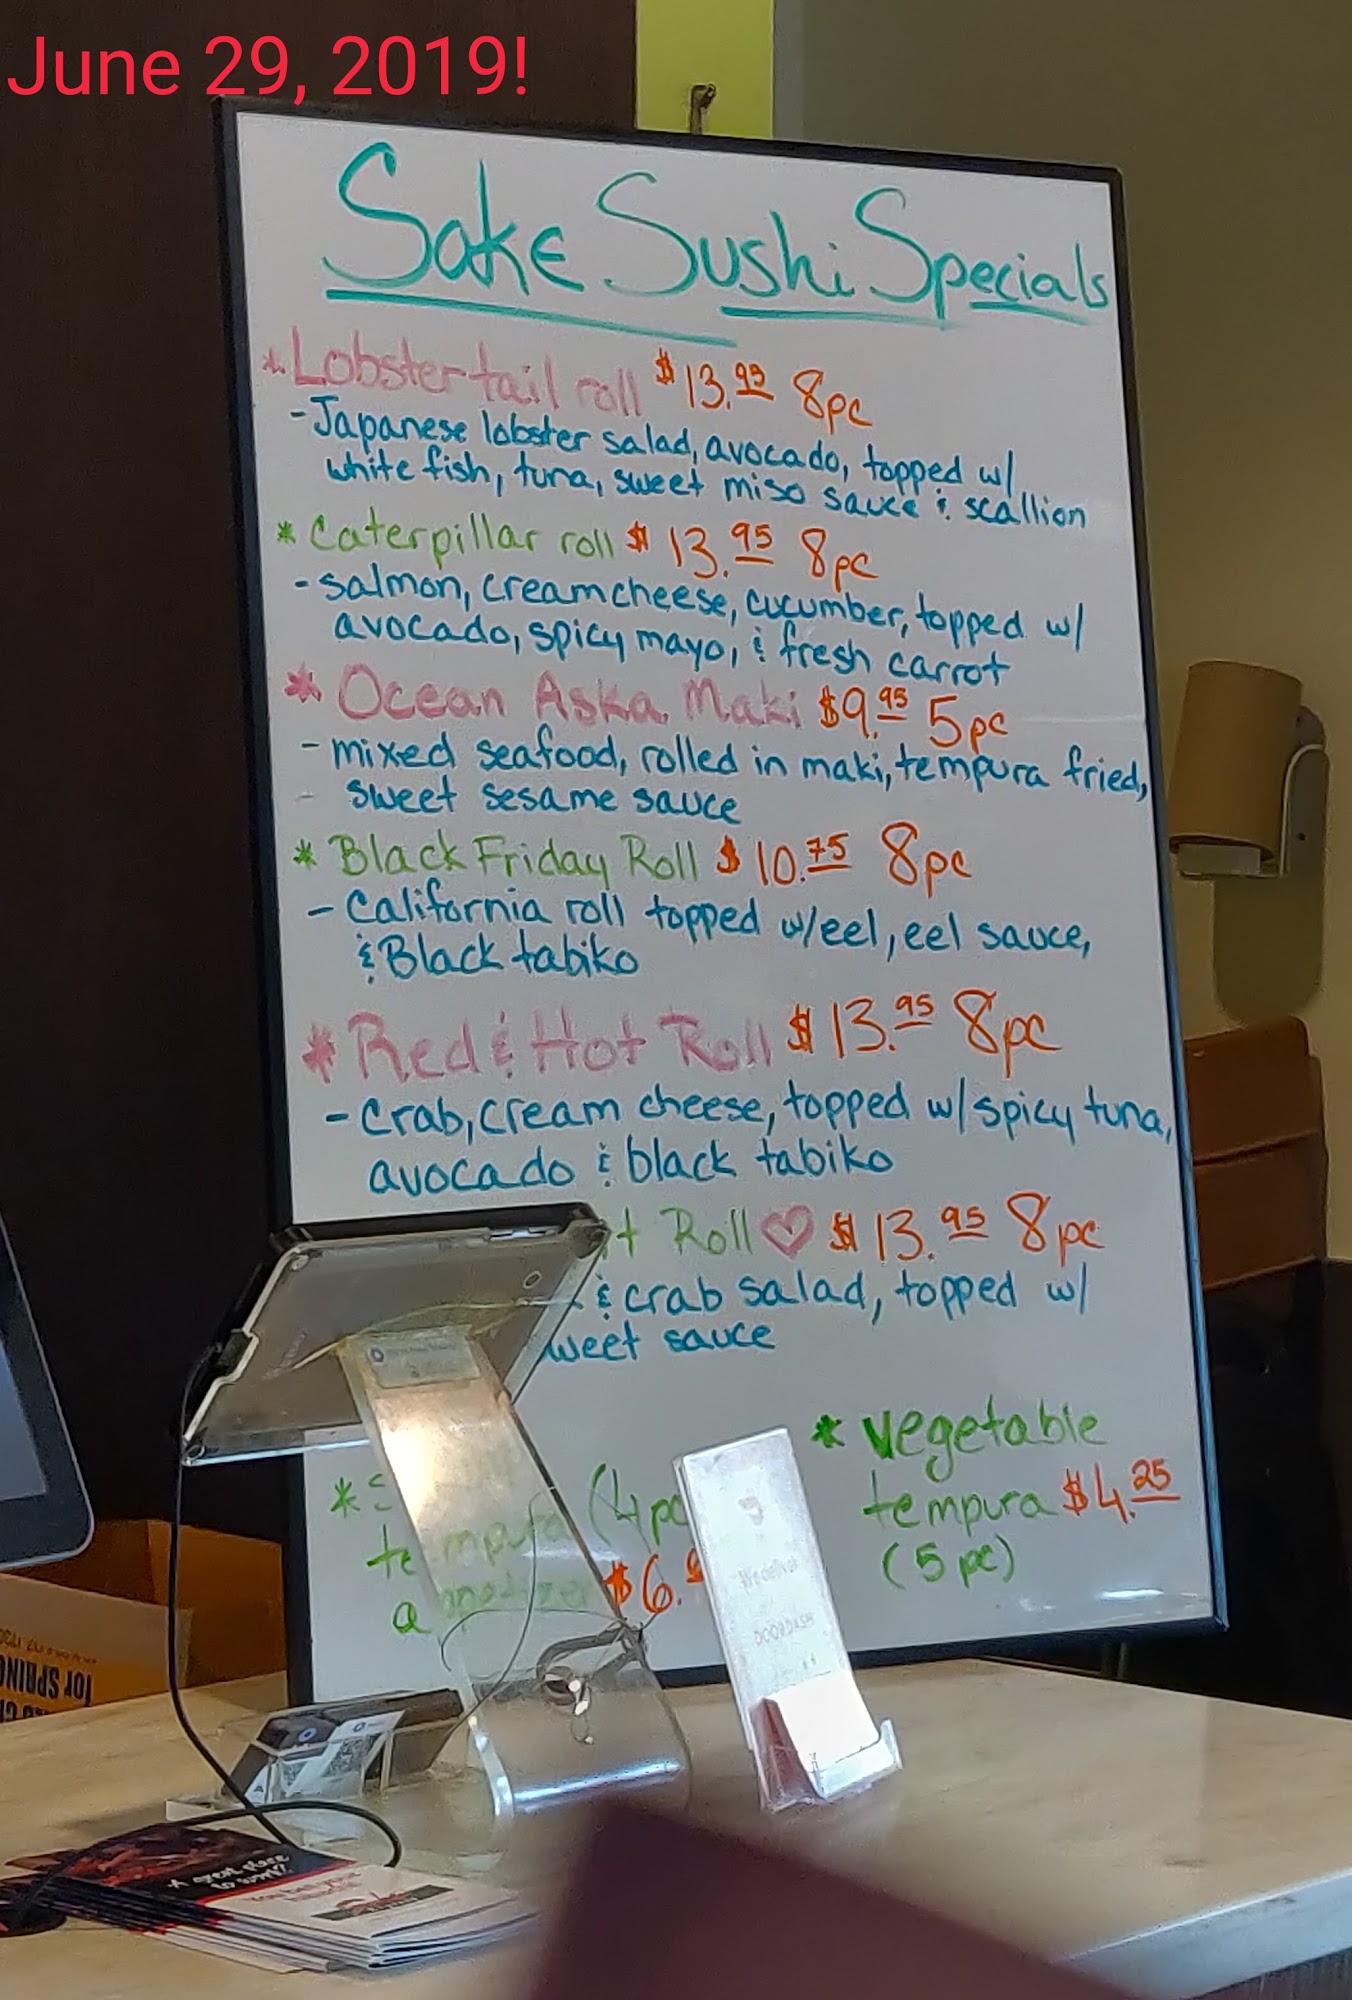 June 29, 2019!
Sake Sushi Specials
* Lobster tail roll $13.95 8pc
- Japanese lobster salad, avocado, topped w/
white fish, tuna, sweet miso sauce & scallion
* Caterpillar roll $13.95 8pc
- salmon, cream cheese, cucumber, topped w/
avocado, spicy mayo, & fresh carrot
* Ocean Aska Maki $9.95 5pc
- mixed seafood, rolled in maki, tempura fried,
- sweet sesame sauce
* Black Friday Roll $10.75 8pc
- California roll topped w/eel, eel sauce,
& Black tabiko
* Red & Hot Roll $13.95 8pc
- crab, cream cheese, topped w/spicy tuna,
avocado & black tabiko
Roll ♡ $13.95 8pc
& crab salad, topped w/
sauce
* vegetable
tempura $4.25
(5 pc)
*
tempura (4pc
appetizer $6.
DOORDASH
for SPRING
A great place
to